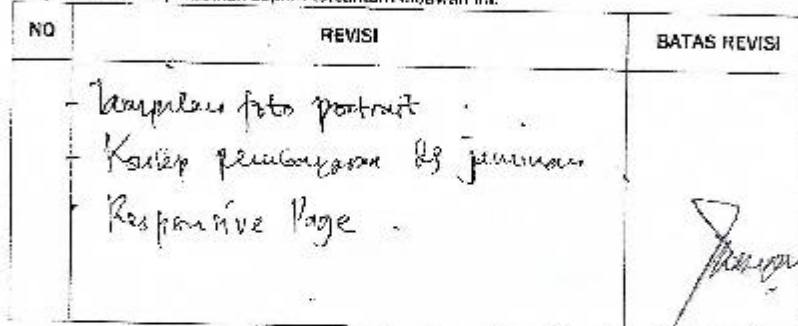 NO REVISI BATAS REVISI
- Tampilan foto portrait .
- Konsep pembayaran dg jaminan
- Responsive Page .